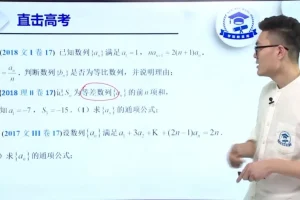 直击高考
(2018文I卷17) 已知数列{aₙ}满足a₁=1, naₙ₊₁=2(n+1)aₙ,
=aₙ/n, 判断数列{bₙ}是否为等比数列，并说明理由;
2018理II卷17)记Sₙ为等差数列{aₙ}的前n项和,
知a₁=-7, S₃=-15. (1)求{aₙ}的通项公式;
(2017文III卷17)设数列{aₙ}满足a₁+3a₂+K+(2n-1)aₙ=2n.
)求{aₙ}的通项公式;